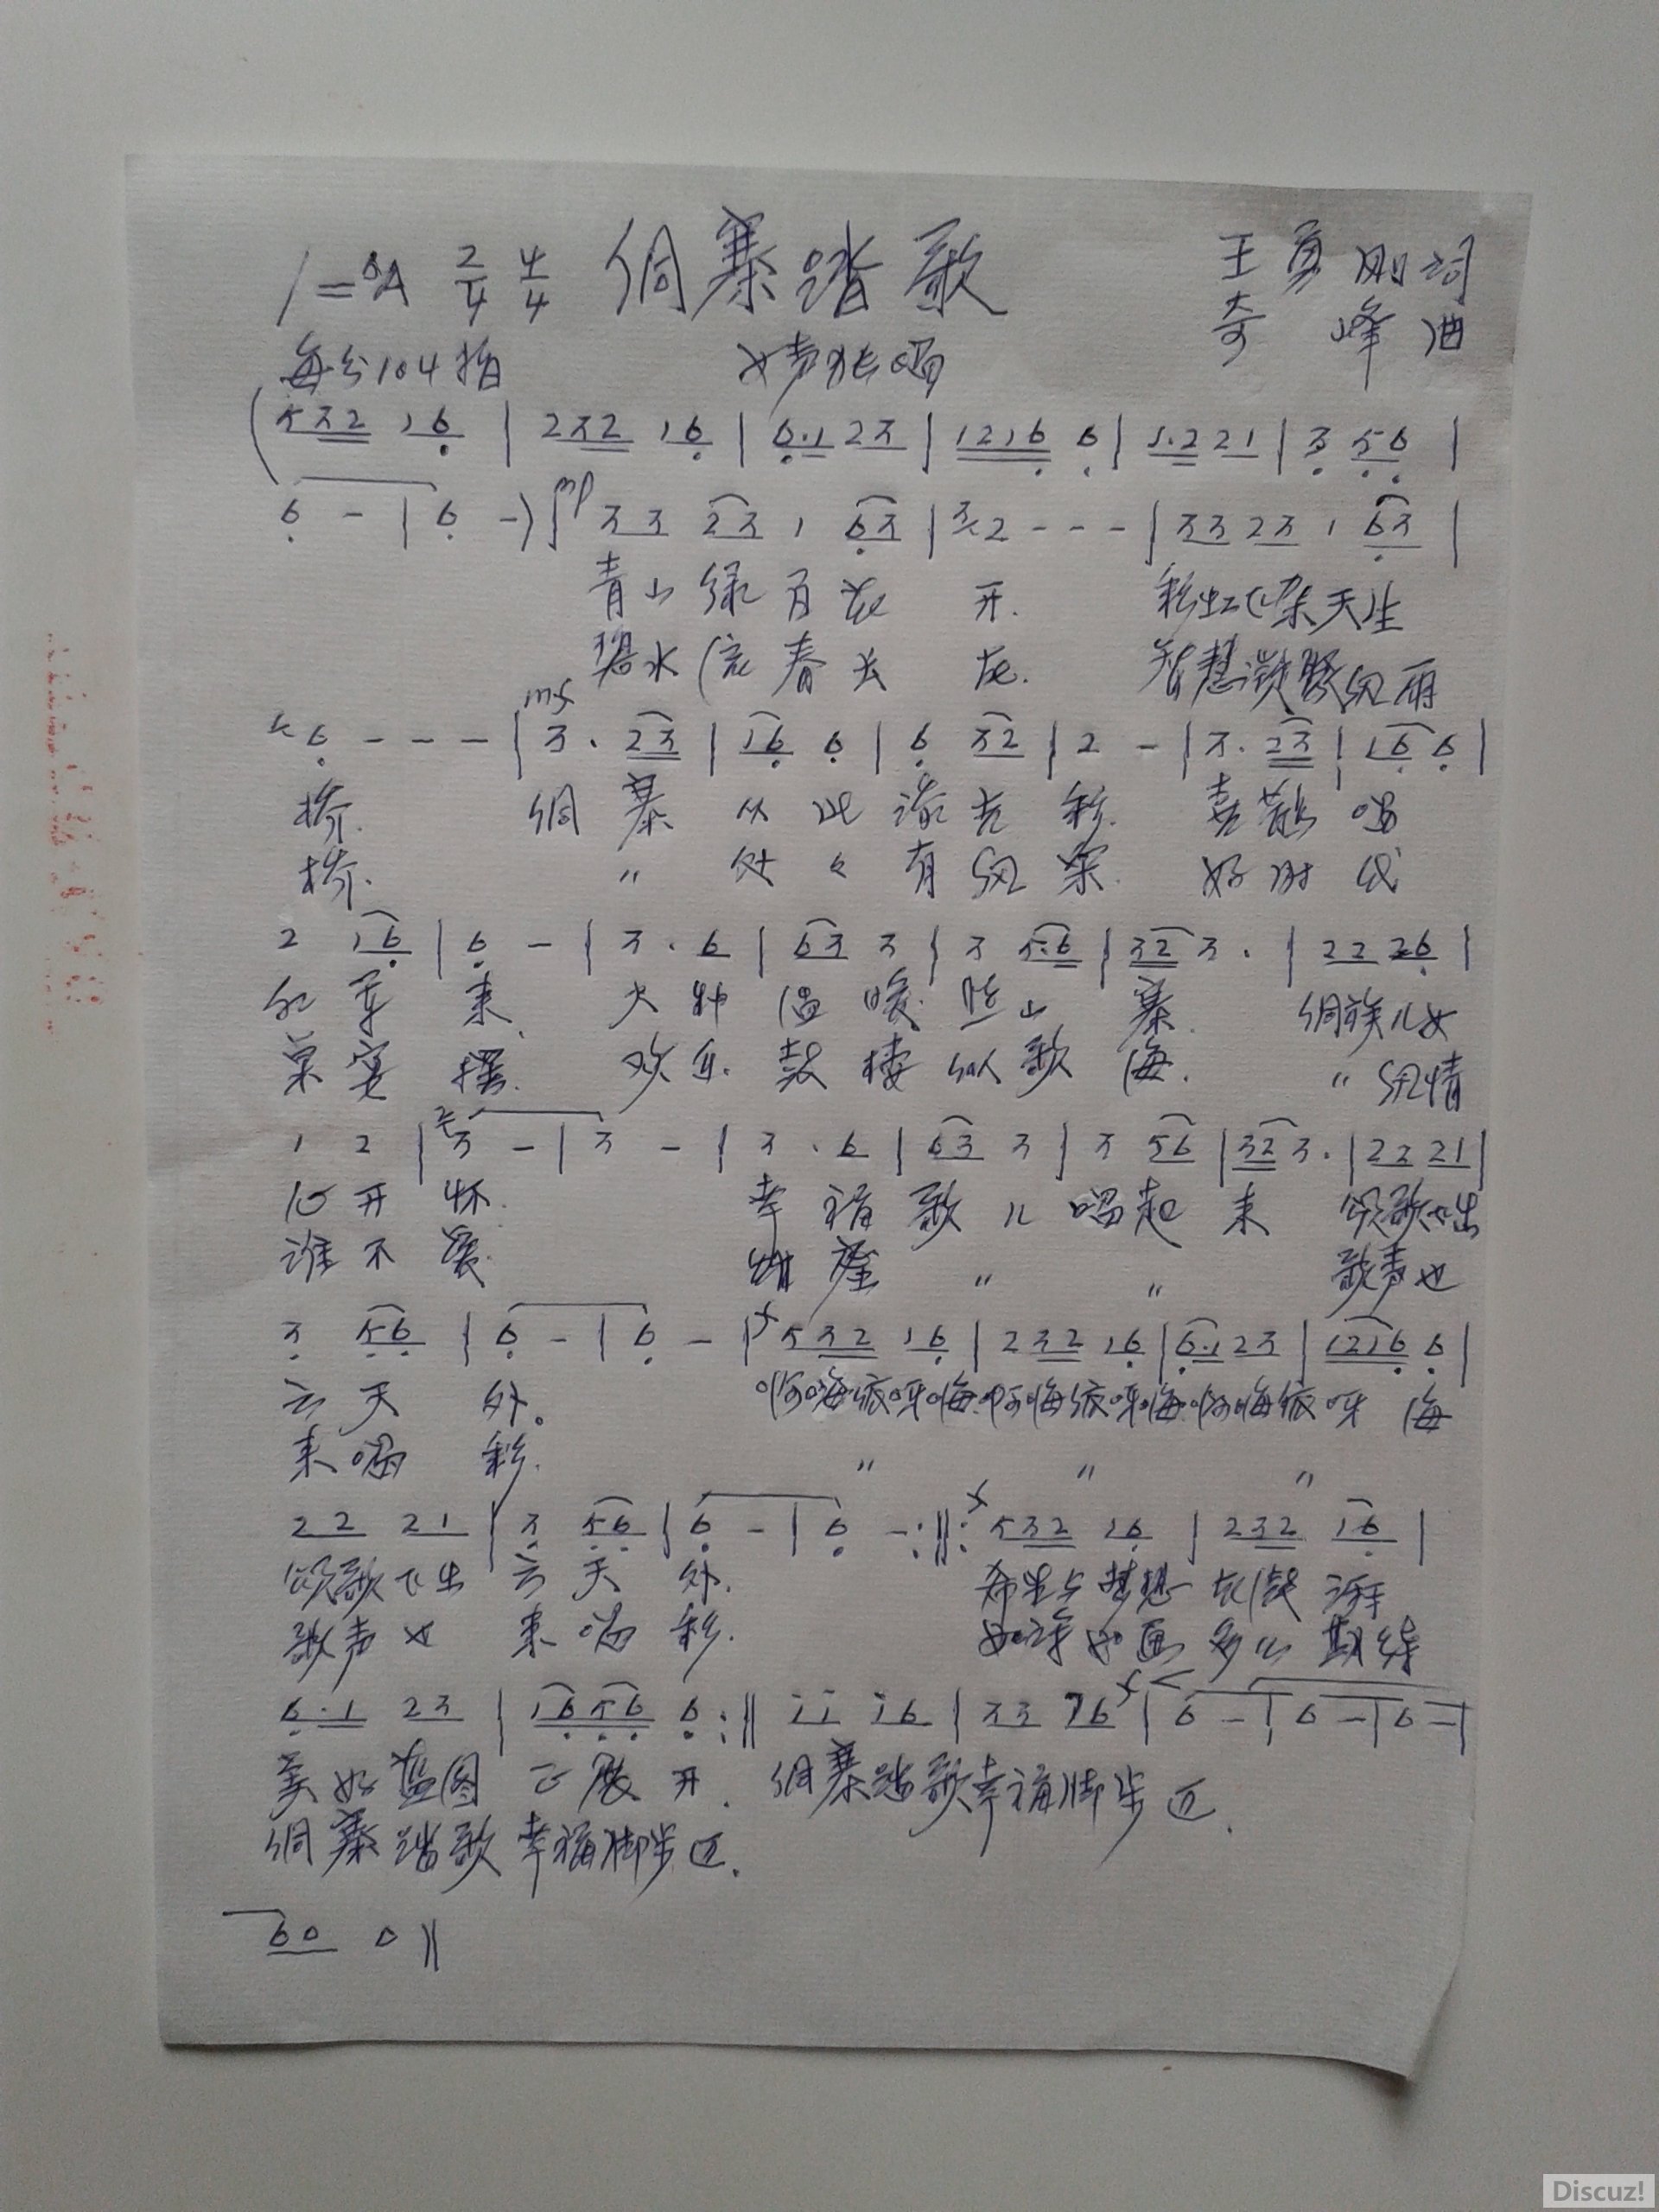 1=♭A 2/4 4/4 侗寨踏歌 王勇刚词
奇峰曲
每分104拍 女声独唱
(532 16 | 232 16 | 6·1 23 | 1216 6 | 1·2 21 | 3 56 |
6 - | 6 -) | mp 33 23 1 63 | 2 - - - | 33 23 1 63 |
青山绿百花开. 彩虹飞架天生
碧水流春长在. 智慧凝聚风雨
6 - - - | mf 3· 23 | 16 6 | 6 32 | 2 - | 3· 23 | 16 6 |
桥. 侗寨从此添光彩. 喜鹊唱
桥. 〃 处々有风采. 好时代
2 16 | 6 - | 3· 6 | 63 3 | 3 5·6 | 32 3· | 22 26 |
红军来. 火种温暖照山寨. 侗族儿女
果实摆. 欢乐鼓楼似歌海. 〃 风情
1 2 | 3 - | 3 - | 3· 6 | 63 3 | 3 56 | 32 3· | 22 21 |
心开怀. 幸福歌儿唱起来 颂歌飞出
谁不爱. 〃 〃 歌声也
3 56 | 6 - | 6 - | f 532 16 | 232 16 | 6·1 23 | 1216 6 |
云天外。 啊嗨依呀嗨.啊嗨依呀嗨.啊嗨依呀嗨
来喝彩. 〃 〃 〃
22 21 | 3 56 | 6 - | 6 - :‖: f 532 16 | 232 16 |
颂歌飞出云天外. 希望与梦想
歌声也来喝彩. 如诗如画多么期待
6·1 23 | 1656 6 :‖ i i i6 | 33 76 | f 6 - | 6 - | 6 - |
美好蓝图已展开. 侗寨踏歌幸福脚步迈.
侗寨踏歌幸福脚步迈.
60 0 ‖
Discuz!